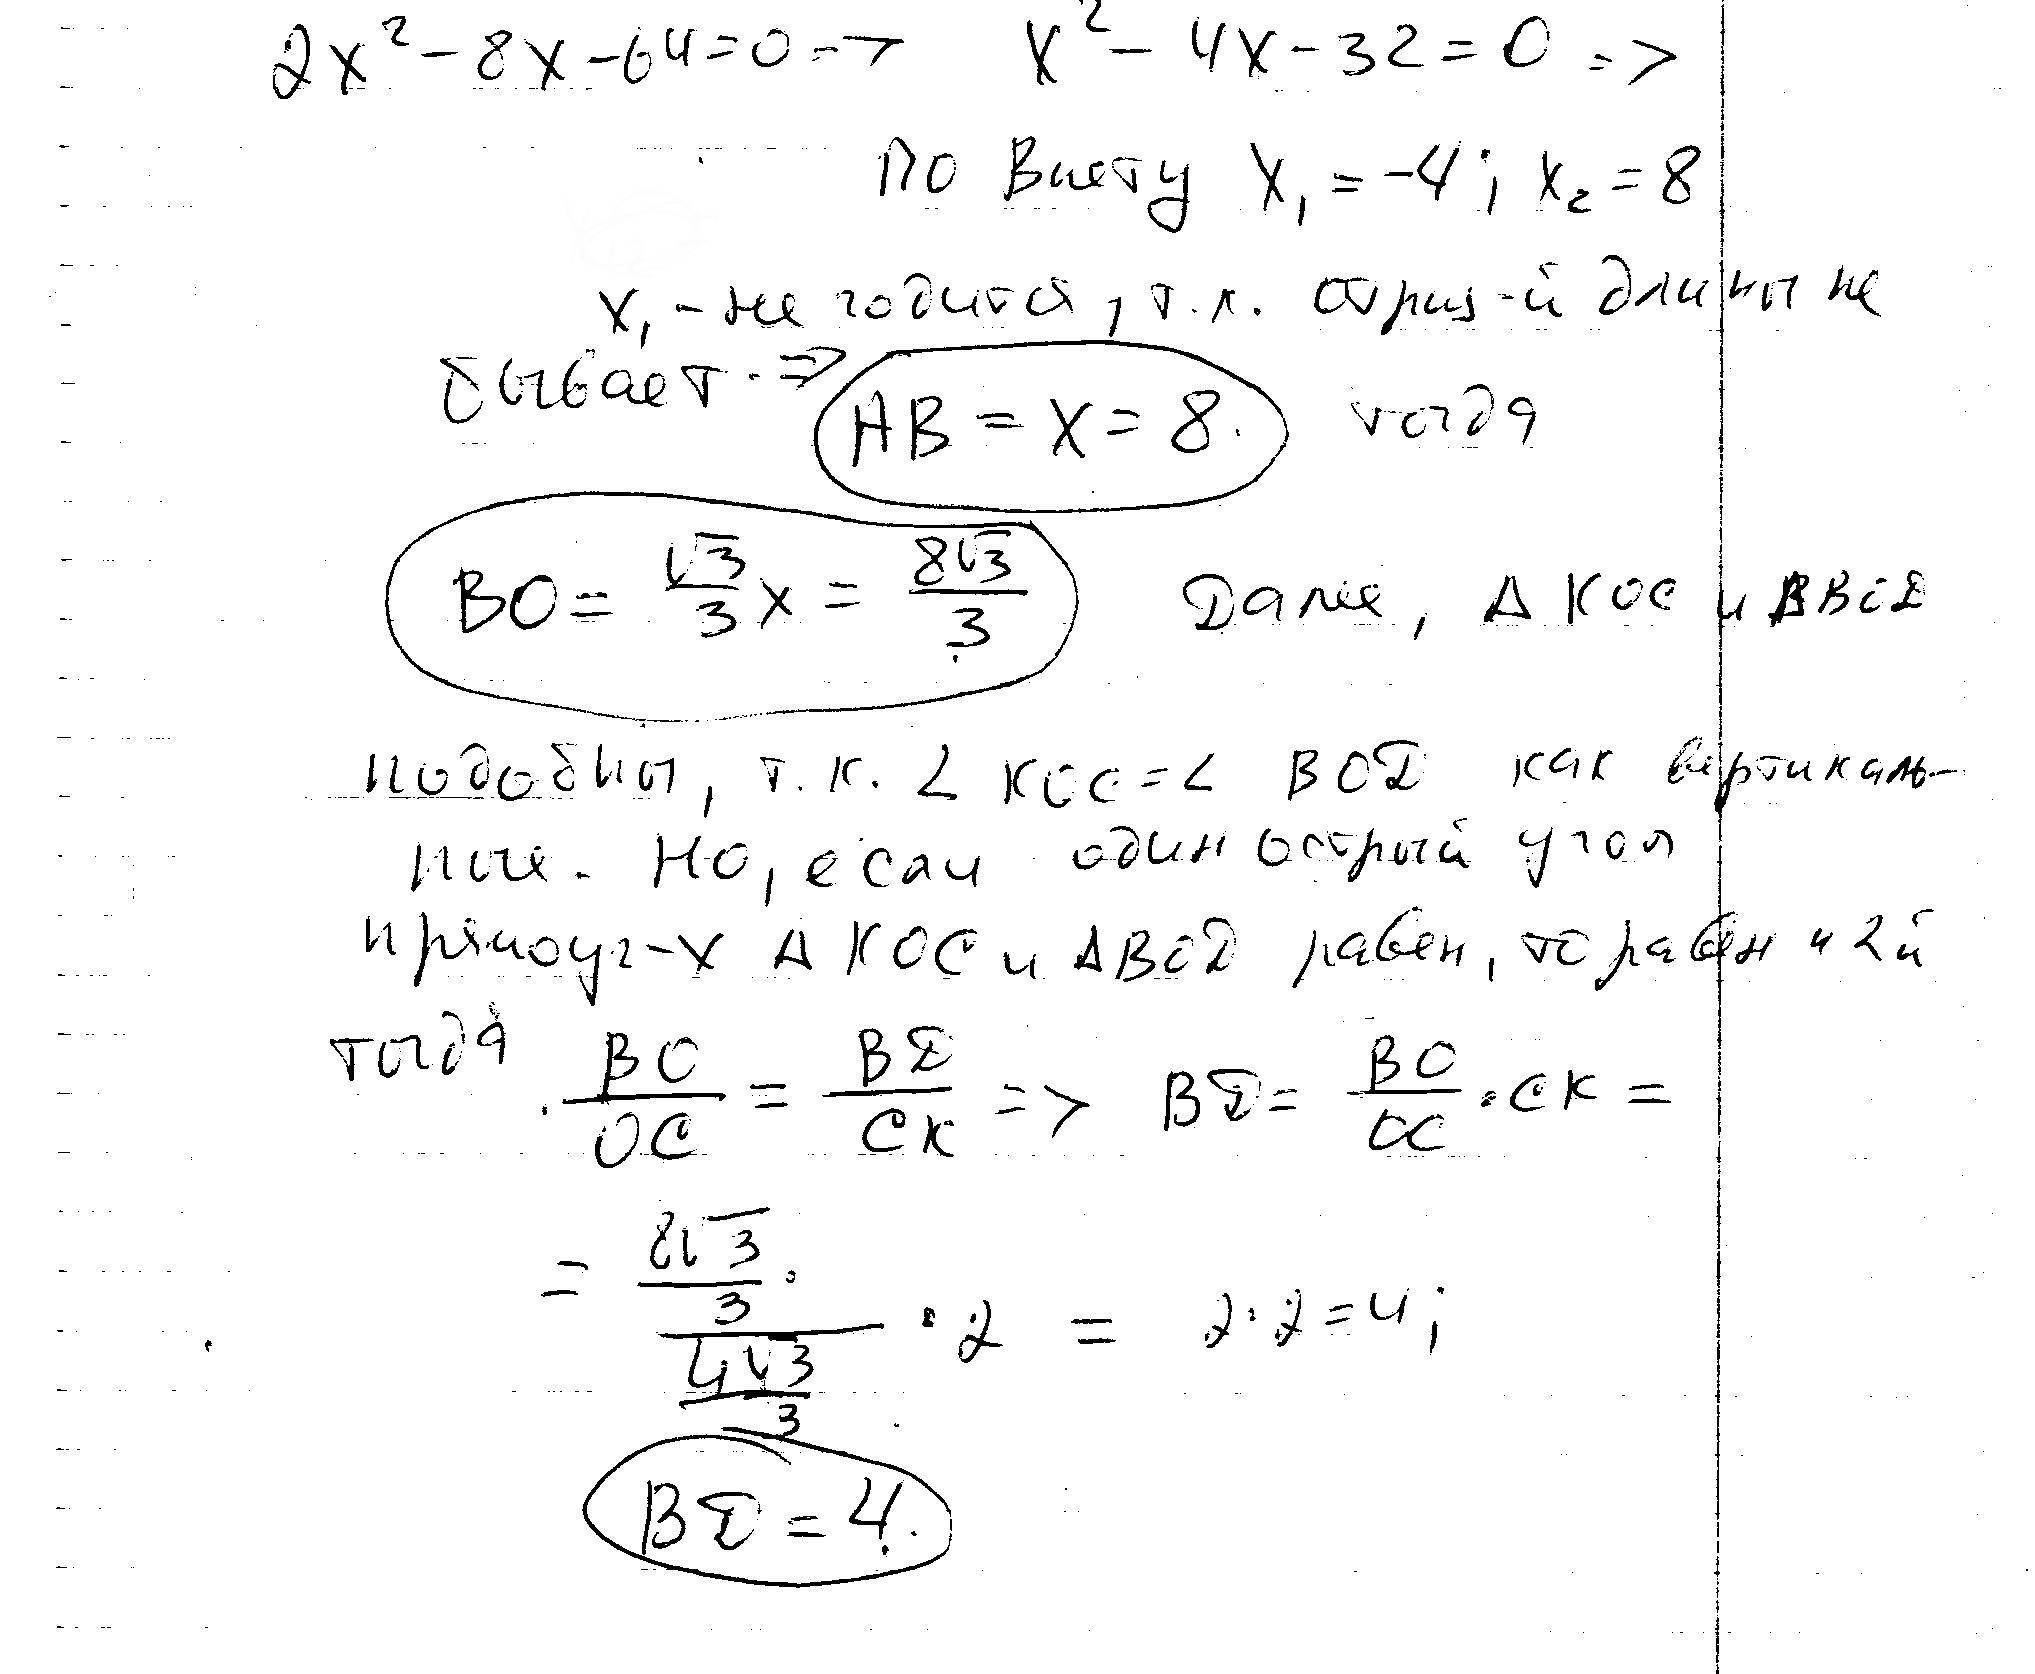 2x² - 8x - 64 = 0 => x² - 4x - 32 = 0 =>
по Виету x₁ = -4; x₂ = 8
x₁ - не годится, т.к. отриц-й длины не
бывает. => AB = x = 8. тогда
BO = √3/3 x = 8√3/3 Далее, Δ KOC и ΔBOD
подобны, т.к. ∠ KOC = ∠ BOD как вертикаль-
ные. Но, если один острый угол
прямоуг-х Δ KOC и ΔBOD равен, то равен и 2й
тогда BO/OC = BD/CK => BD = BO/OC · CK =
= (8√3/3)/(4√3/3) · 2 = 2·2 = 4;
BD = 4.